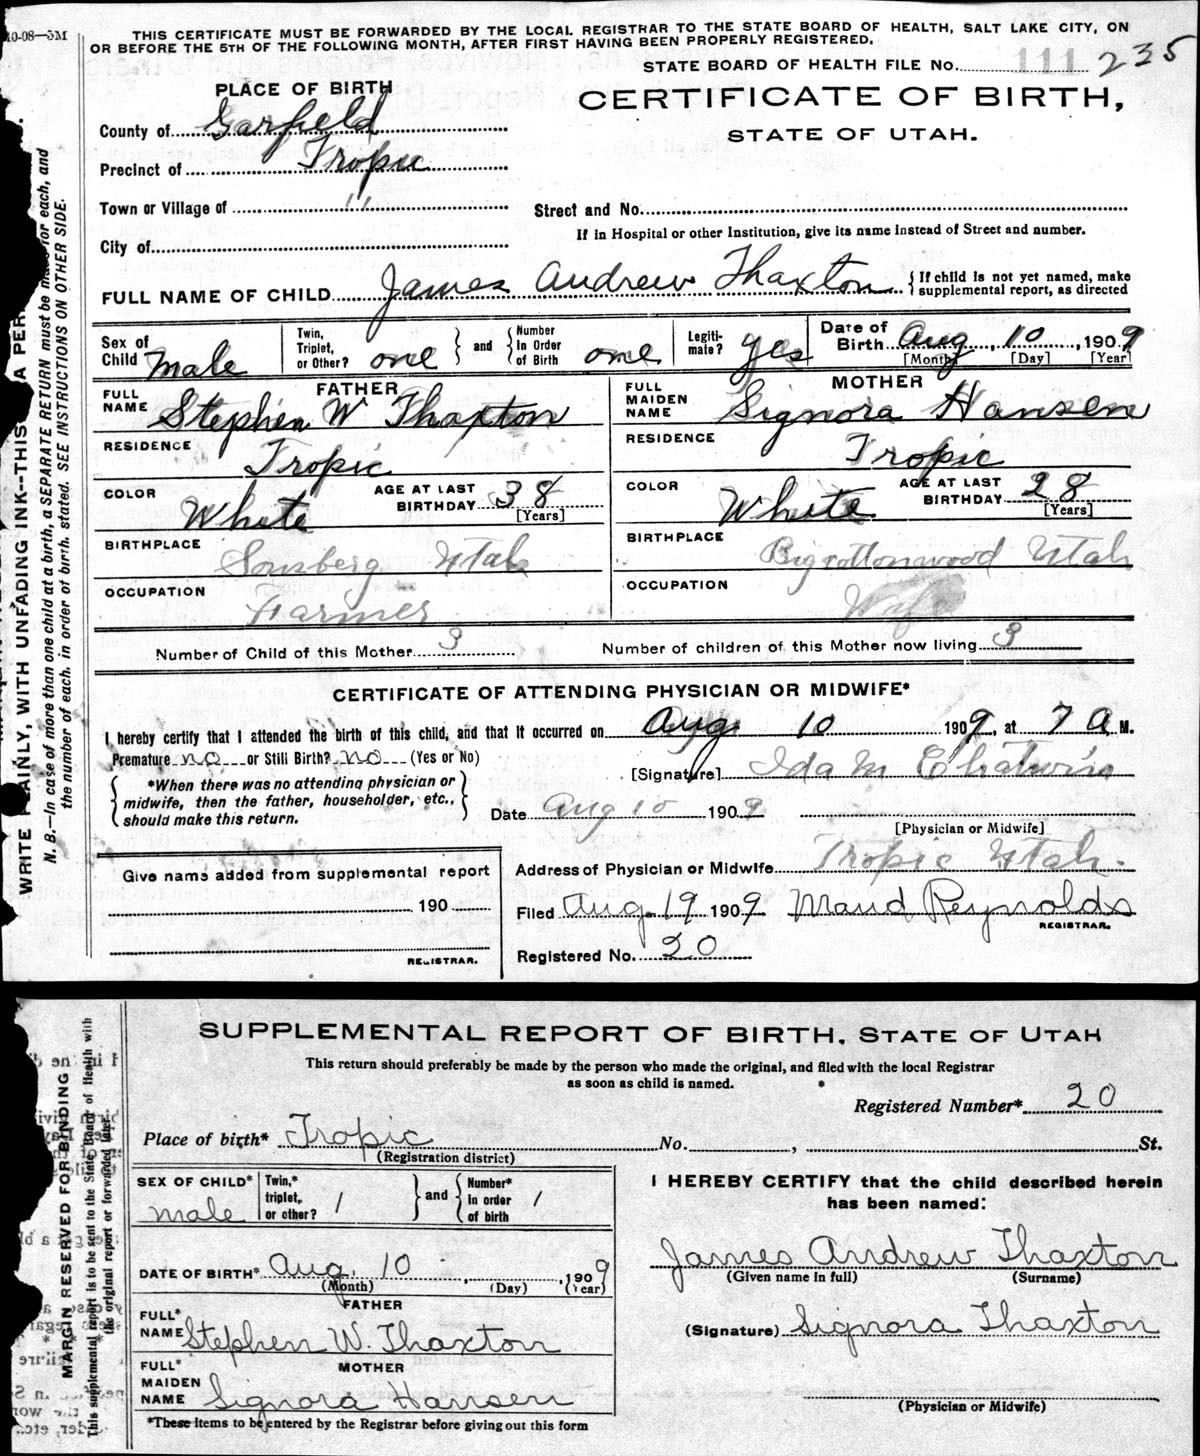 10-08—5M
THIS CERTIFICATE MUST BE FORWARDED BY THE LOCAL REGISTRAR TO THE STATE BOARD OF HEALTH, SALT LAKE CITY, ON
OR BEFORE THE 5TH OF THE FOLLOWING MONTH, AFTER FIRST HAVING BEEN PROPERLY REGISTERED.
STATE BOARD OF HEALTH FILE No. 111 235
PLACE OF BIRTH
CERTIFICATE OF BIRTH,
STATE OF UTAH.
County of Garfield
Precinct of Tropic
Town or Village of "
Street and No.
City of
If in Hospital or other Institution, give its name instead of Street and number.
FULL NAME OF CHILD James Andrew Thaxton { If child is not yet named, make
supplemental report, as directed
Sex of Child Male
Twin, Triplet, or Other? one } and { Number In Order of Birth one
Legitimate? yes
Date of Birth Aug 10, 1909
[Month] [Day] [Year]
FATHER
FULL NAME Stephen W Thaxton
MOTHER
FULL MAIDEN NAME Signora Hansen
RESIDENCE Tropic
RESIDENCE Tropic
COLOR White AGE AT LAST BIRTHDAY 38 [Years]
COLOR White AGE AT LAST BIRTHDAY 28 [Years]
BIRTHPLACE Utah
BIRTHPLACE Bigcottonwood Utah
OCCUPATION Farmer
OCCUPATION Wife
Number of Child of this Mother 3
Number of children of this Mother now living 3
CERTIFICATE OF ATTENDING PHYSICIAN OR MIDWIFE*
I hereby certify that I attended the birth of this child, and that it occurred on Aug 10 1909, at 7 A M.
Premature no or Still Birth? no (Yes or No)
[Signature] Ida M
{ *When there was no attending physician or
midwife, then the father, householder, etc.,
should make this return. }
Date Aug 10 1909
[Physician or Midwife]
Address of Physician or Midwife Tropic Utah.
Give name added from supplemental report
190
REGISTRAR.
Filed Aug. 19 1909 Maud Reynolds
REGISTRAR.
Registered No. 20
WRITE PLAINLY, WITH UNFADING INK--THIS A PER
N. B.—In case of more than one child at a birth, a SEPARATE RETURN must be made for each, and
the number of each, in order of birth, stated. SEE INSTRUCTIONS ON OTHER SIDE.
SUPPLEMENTAL REPORT OF BIRTH, STATE OF UTAH
This return should preferably be made by the person who made the original, and filed with the local Registrar
as soon as child is named.
Registered Number* 20
Place of birth* Tropic No. , St.
(Registration district)
SEX OF CHILD* male
Twin,* triplet, or other? 1 } and { Number* in order of birth 1
I HEREBY CERTIFY that the child described herein
has been named:
James Andrew Thaxton
(Given name in full) (Surname)
DATE OF BIRTH* Aug. 10, 1909
(Month) (Day) (Year)
FATHER
FULL* NAME Stephen W. Thaxton
(Signature) Signora Thaxton
MOTHER
FULL* MAIDEN NAME Signora Hansen
(Physician or Midwife)
*These items to be entered by the Registrar before giving out this form
MARGIN RESERVED FOR BINDING
This supplemental report is to be sent to the State Board of Health with
the original report or forwarded later.